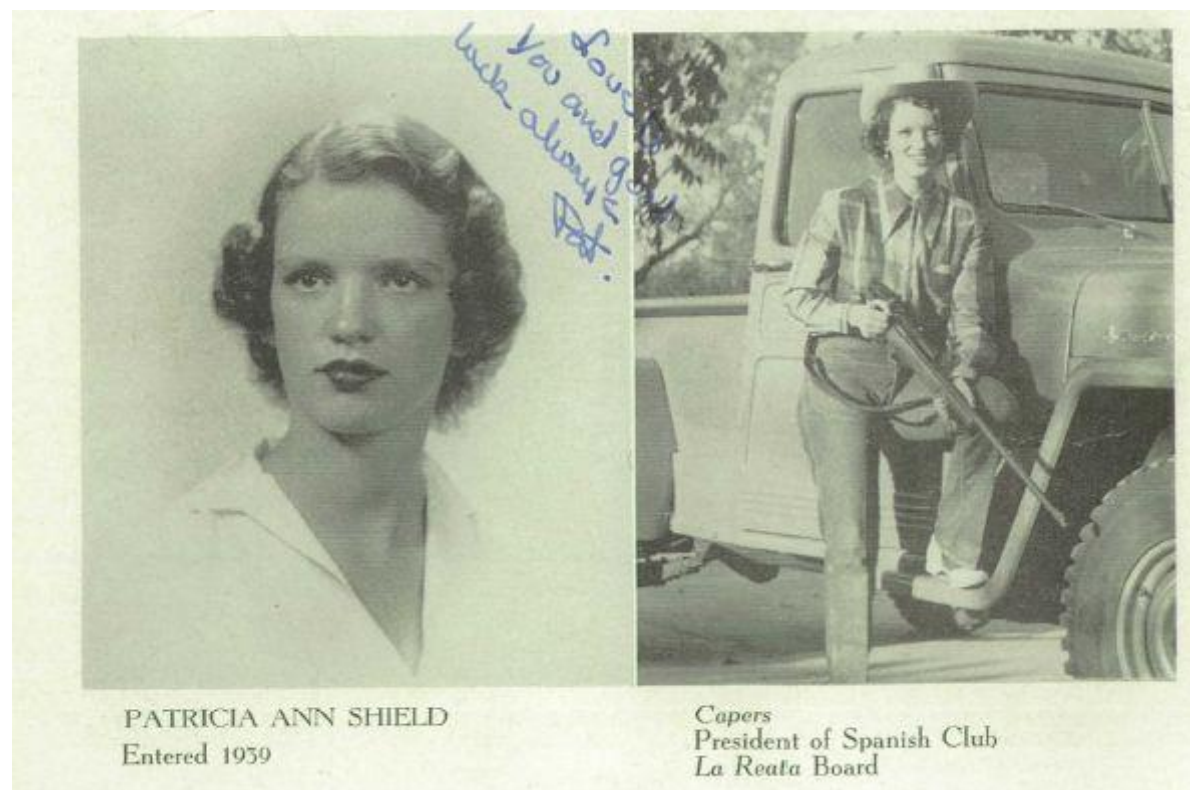 Love to
You and good
luck always
Pat.
PATRICIA ANN SHIELD
Entered 1939
Capers
President of Spanish Club
La Reata Board